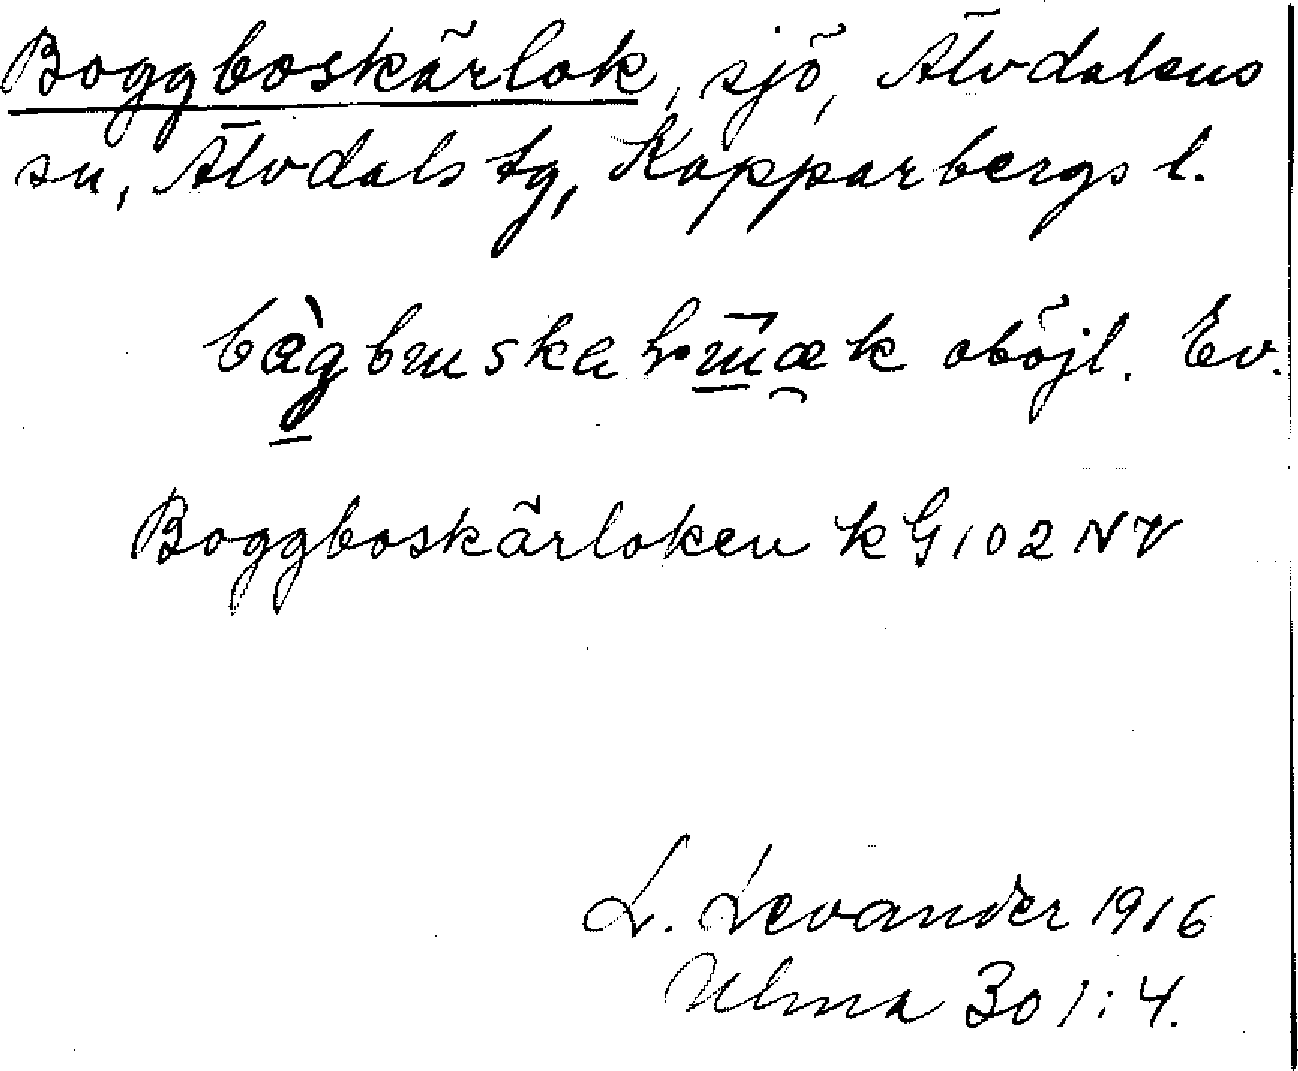 Boggboskärlok, sjö, Älvdalens
sn, Älvdals tg, Kopparbergs l.
oböjl. Ev.
Boggboskärloken kG102NV
L. Levander 1916
Ulma 301:4.